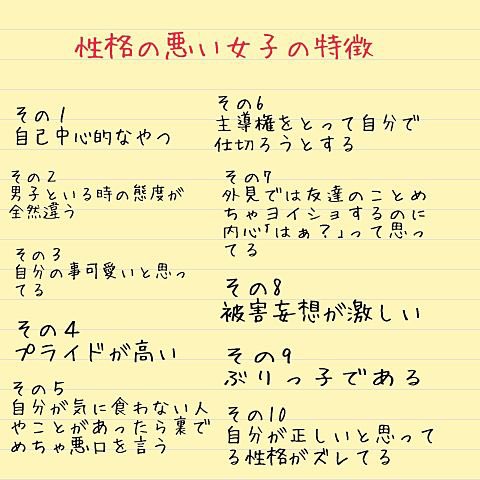 性格の悪い女子の特徴
その1
自己中心的なやつ
その2
男子といる時の態度が
全然違う
その3
自分の事可愛いと思っ
てる
その4
プライドが高い
その5
自分が気に食わない人
やことがあったら裏で
めちゃ悪口を言う
その6
主導権をとって自分で
仕切ろうとする
その7
外見では友達のことめ
ちゃヨイショするのに
内心「はぁ?」って思っ
てる
その8
被害妄想が激しい
その9
ぶりっ子である
その10
自分が正しいと思って
る性格がズレてる